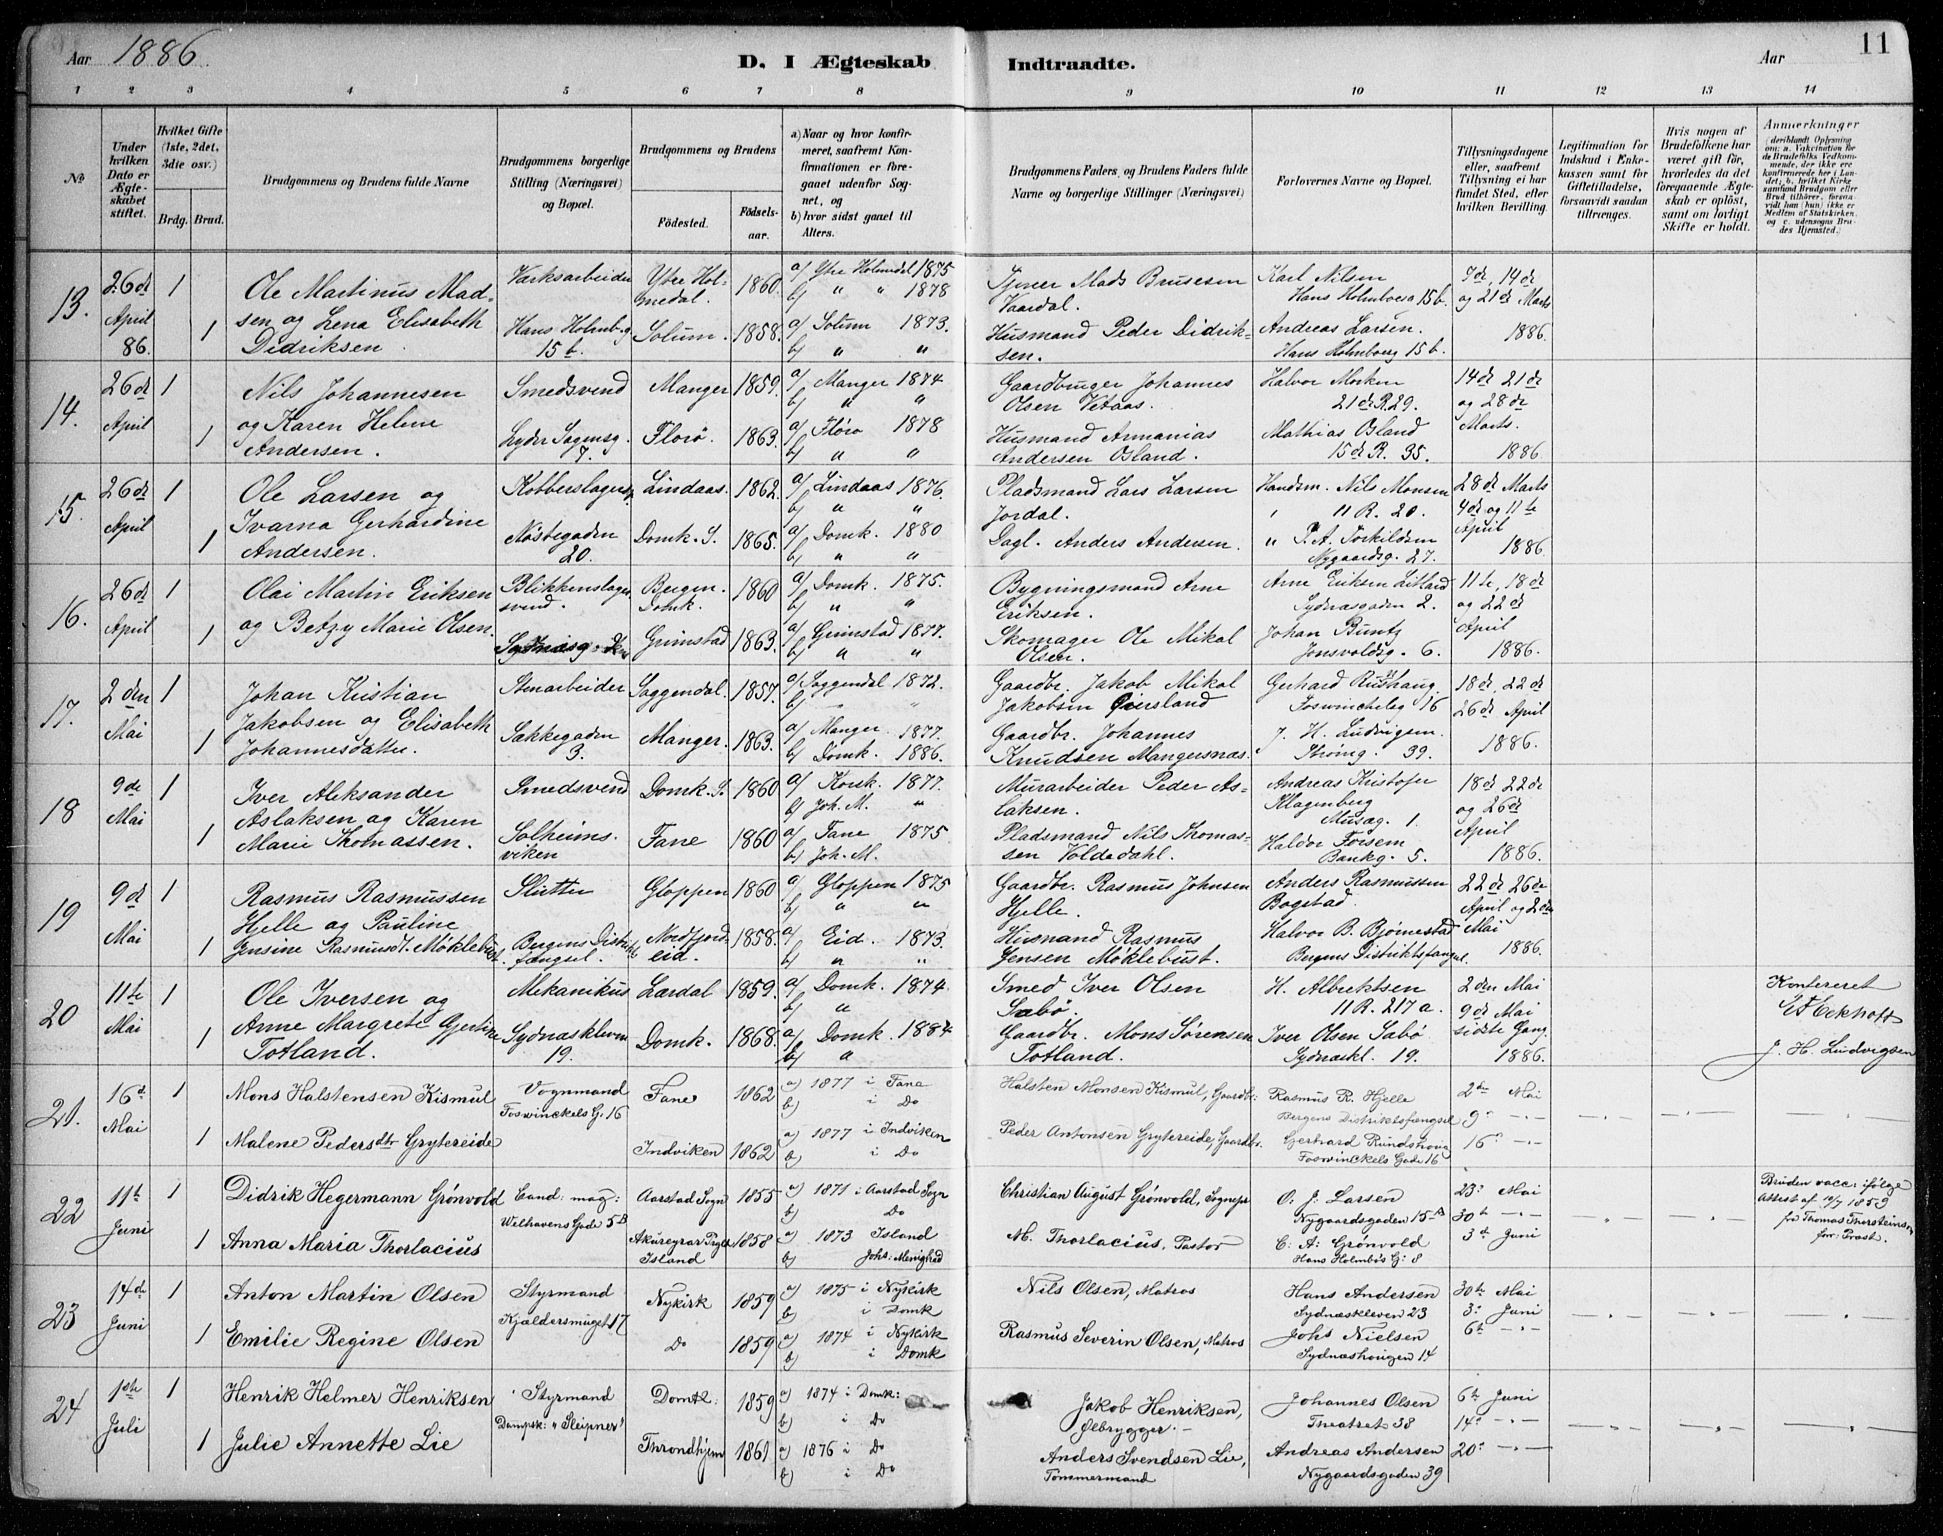 Aar 1886.
D. I Ægteskab Indtraadte.
Aar
11
1 2 3 4 5 6 7 8 9 10 11 12 13 14
No
Under hvilken Dato er Ægteskabet stiftet.
Hvilket Gifte (1ste, 2det, 3die osv.)
Brdg. Brud.
Brudgommens og Brudens fulde Navne
Brudgommens borgerlige Stilling (Næringsvei) og Bopæl.
Brudgommens og Brudens
Fødested.
Fødselsaar.
a) Naar og hvor konfirmeret, saafremt Konfirmationen er foregaaet udenfor Sognet, og
b) hvor sidst gaaet til Alters.
Brudgommens Faders og Brudens Faders fulde Navne og borgerlige Stillinger (Næringsvei)
Forlovernes Navne og Bopæl.
Tillysningsdagene eller, saafremt Tillysning ei har fundet Sted, efter hvilken Bevilling.
Legitimation for Indskud i Enkekassen samt for Giftetilladelse, forsaavidt saadan tiltrænges.
Hvis nogen af Brudefolkene har været gift før, hvorledes da det foregaaende Ægteskab er opløst, samt om lovligt Skifte er holdt.
Anmerkninger (deriblandt Oplysning om: a. Vakcination for de Brudefolks Vedkommende, der ikke ere konfirmerede her i Landet; b. hvilket Kirkesamfund Brudgom eller Brud tilhører, forsaavidt han (hun) ikke er Medlem af Statskirken, og c. udensogns Brudes Hjemsted.)
13. 26de April 86. 1 1
Ole Martinus Madsen og Lena Elisabeth Didriksen
Værksarbeider Hans Holmb.g. 15 b.
Ytre Holmedal. 1860. a/ Ytre Holmedal 1875 b/ " " 1878
Solum. 1858. a/ Solum 1873. b/ " "
Mads Brusesen Vaardal.
Husmand Peder Didriksen.
Karl Nilsen Hans Holmboeg 15 b.
Andreas Larsen. Hans Holmboeg 15 b.
7de, 14de og 21de Marts 1886.
14. 26de April 1 1
Nils Johannesen og Karen Helene Andersen.
Smedsvend Lyder Sagensg. 7.
Manger 1859. a/ Manger 1874 b/ " "
Florø. 1863. a/ Florø 1878 b/ " "
Gaardbruger Johannes Olsen Vetaas.
Husmand Armanias Andersen Osland.
Halvor Morken 21de R. 29.
Mathias Osland 15de R. 35.
14de 21de og 28de Marts. 1886.
15. 26de April 1 1
Ole Larsen og Ivarna Gerhardine Andersen.
Kobberslagersv. Nøstegaden 20.
Lindaas. 1862. a/ Lindaas 1876. b/ " "
Domk. S. 1865. a/ Domk. 1880 b/ " "
Pladsmand Lars Larsen Jordal.
Dagl. Anders Andersen.
Handsm. Nils Monsen 11 R. 20.
" P. A. Torkildsen Nygaardsg. 27.
28de Marts 4de og 11te April 1886.
16. 26de April 1 1
Olai Martin Eriksen og Betzy Marie Olsen.
Blikkenslagersvend.
Bergen. Domk. 1860 a/ Domk. 1875. b/ " "
Grimstad 1863. a/ Grimstad 1877. b/ " "
Bygningsmand Arne Eriksen.
Skomager Ole Mikal Olsen.
Arne Eriksen Litland Sydnæsgaden 2.
Johan Buntz Jonsvoldsg. 6.
11te, 18de og 22de April 1886.
17. 2den Mai 1 1
Johan Kristian Jakobsen og Elisabeth Johannesdatter.
Stenarbeider Sækkegaden 3.
Soggendal. 1857. a/ Soggendal 1872. b/ "
Manger. 1863. a/ Manger. 1877. b/ Domk. 1886.
Gaardbr. Jakob Mikal Jakobsen Eiersland
Gaardbr. Johannes Knudsen Mangersnæs.
Gerhard Rushaug. Foswinckelsg 16
J. H. Ludvigsen. Strømg. 39.
18de, 22de 26de April 1886.
18 9de Mai 1 1
Iver Aleksander Aslaksen og Karen Marie Thomassen.
Smedsvend Solheimsviken
Domk. S. 1860 a/ Korsk. 1877. b/ Joh. M. "
Fane 1860 a/ Fane 1875 b/ Joh. M.
Murarbeider Peder Aslaksen.
Pladsmand Nils Thomassen Voldedahl.
Andreas Kristofer Klagenberg Musæg. 1.
Haldor Forsem Bankg. 5.
18de 22de og 26de April 1886.
19 9de Mai 1 1
Rasmus Rasmussen Hjelle og Pauline Jensine Rasmusdt. Møklebust.
Slutter Bergens Distriktsfængsel.
Gloppen 1860 a/ Gloppen 1875 b/ " "
Nordfjordeid. 1858. a/ Eid. 1873. b/ " "
Gaardbr. Rasmus Johnsen Hjelle.
Husmand Rasmus Jensen Møklebust.
Anders Rasmussen Bogstad.
Halvor B. Bjørnestad Bergens Distriktsfængsel.
22de 26de April og 2den Mai 1886.
20 11te Mai 1 1
Ole Iversen og Anne Margrete Gjertine Totland.
Mekanikus Sydnæskleven 19.
Lærdal 1859. a/ Domk. 1874. b/ "
Domk. 1868. a/ Domk. 1884 b/ "
Smed Iver Olsen Sæbø.
Gaardbr. Mons Sørensen Totland.
H. Albrektsen 11 R. 217 a.
Iver Olsen Sæbø Sydnæskl. 19.
2den Mai 9de Mai sidste Gang. 1886.
Konfereret
Eckhoff
J. H. Ludvigsen
21. 16d Mai 1 1
Mons Halstensen Kismul
Malene Pedersdtr Grytereide
Vognmand Foswinckels G. 16
Fane 1862 a) 1877 i Fane b) i Do
Indviken 1862 a) 1877 i Indviken b) i Do
Halsten Monsen Kismul, Gaardbr.
Peder Antonsen Grytereide, Gaardbr.
Rasmus R. Hjelle Bergens Distriktsfængsel
Gerhard Rundshaug Foswinckels Gade 16
2den Mai 9de —"— 16de —"—
22 11te Juni 1 1
Didrik Hegermann Grønvold
Anna Maria Thorlacius
Cand: mag: Welhavens Gade 5B
Aarstad Sogn 1855 a) 1871 i Aarstad Sogn b) Do
Akureyrar Island 1858 a) 1873 Island b) Johs: Menighed
Christian August Grønvold, Sognepr
M. Thorlacius, Pastor
O. J. Larsen Nygaardsgaden 15 A
C. A. Grønvold Hans Holmbos G: 8
23de Mai 30te —"— 3de Juni
Bruden vacc: ifølge Attest af 10/7 1859 fra Thomas Thorsteinson forr: Prost.
23 14de Juni 1 1
Anton Martin Olsen
Emilie Regine Olsen
Styrmand Kjældersmuget 17
Nykirk 1859 a) 1875 i Nykirk b) i Domk
Do 1859 a) 1874 i Nykirk b) i Domk
Nils Olsen, Matros
Rasmus Severin Olsen, Matros
Hans Andersen Sydnæskleven 23
Johs Nielsen Sydnæshaugen 14
30te Mai 3de Juni 6te —"—
24 1ste Juli 1 1
Henrik Helmer Henriksen
Julie Annette Lie
Styrmand Dampsk: "Sleipner"
Domk: 1859 a) 1874 i Domk: b) i Do
Throndhjem 1861 a) 1876 i Do b) i Do
Jakob Henriksen, Ølbrygger.
Anders Svendsen Lie, Tømmermand
Johannes Olsen Theatret 38
Andreas Andersen Nygaardsgaden 39
6te Juni 14de —"— 20de —"—